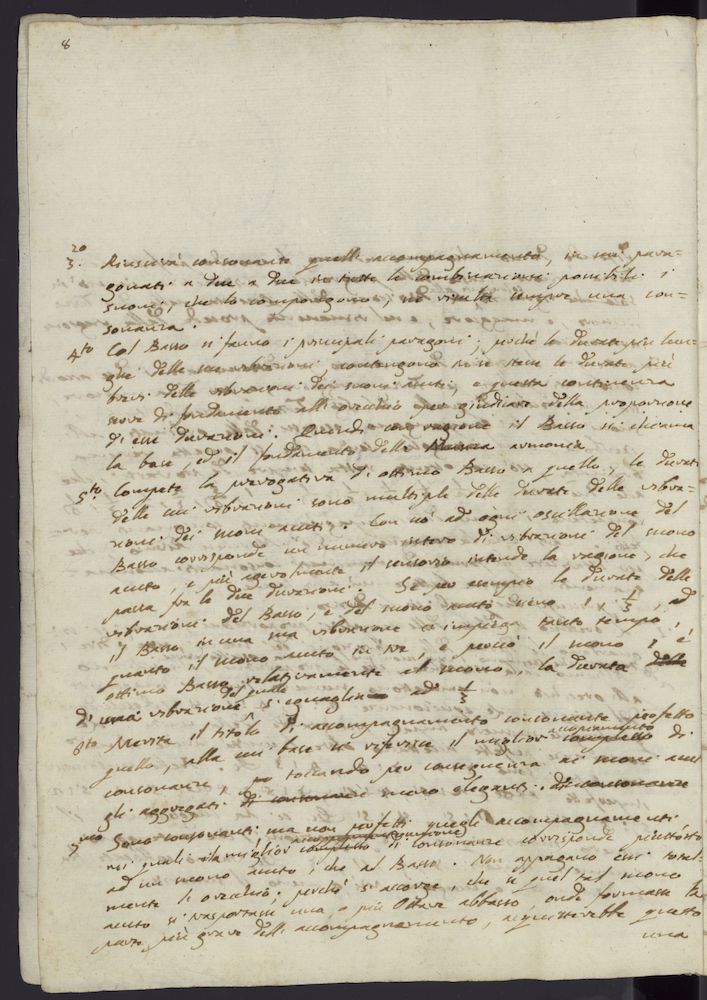 8
3.zo Riuscirà consonante quell'accompagnamento, in cui para=
gonati a due a due in tutte le combinazioni possibili i
suoni, che lo compongono, ne risulta sempre una con=
sonanza.
4to Col Basso si fanno i principali paragoni; perchè le durate più lun=
ghe delle sue vibrazioni contengono in se stesse le durate più
brevi delle vibrazioni dei suoni acuti, e questa continenza
serve di fondamento all'orecchio per giudicare della proporzione
di esse durazioni. Quindi con ragione il Basso si chiama
la base, ed il fondamento della armonia
5to Compete la prerogativa di ottimo Basso a quello, le durate
delle cui vibrazioni sono multiple delle durate delle vibra=
zioni dei suoni acuti. Con ciò ad ogni oscillazione del
Basso corrisponde un numero intero di vibrazioni del suono
acuto, e più agevolmente il sensorio intende la ragione, che
passa fra le due durazioni. Se per esempio le durate delle
vibrazioni del Basso, e del suono acuto sieno 1, 1/3, ed
il Basso in una sua vibrazione impiega tanto tempo,
quanto il suono acuto in tre, e perciò il suono 1 è
ottimo Basso relativamente al suono, la durata delle
di una vibrazione del quale si eguaglia ad 1/3
6to Merita il titolo di accompagnamento consonante perfetto
quello, alla cui base si riferisce il miglior accoppiamento complesso di
consonanze, toccando per conseguenza ai suoni acuti
gli aggregati di consonanze meno eleganti. di consonanze
7mo Sono consonanti ma non perfetti quegli accompagnamenti
nei quali il miglior complesso di consonanze corrisponde piuttosto
ad un suono acuto, che al Basso. Non appagano essi total=
mente l'orecchio; perchè si accorge, che se quel tal suono
acuto si trasportasse una, o più Ottave abbasso, onde formasse la
parte più grave dell'accompagnamento, acquisterebbe questo
una